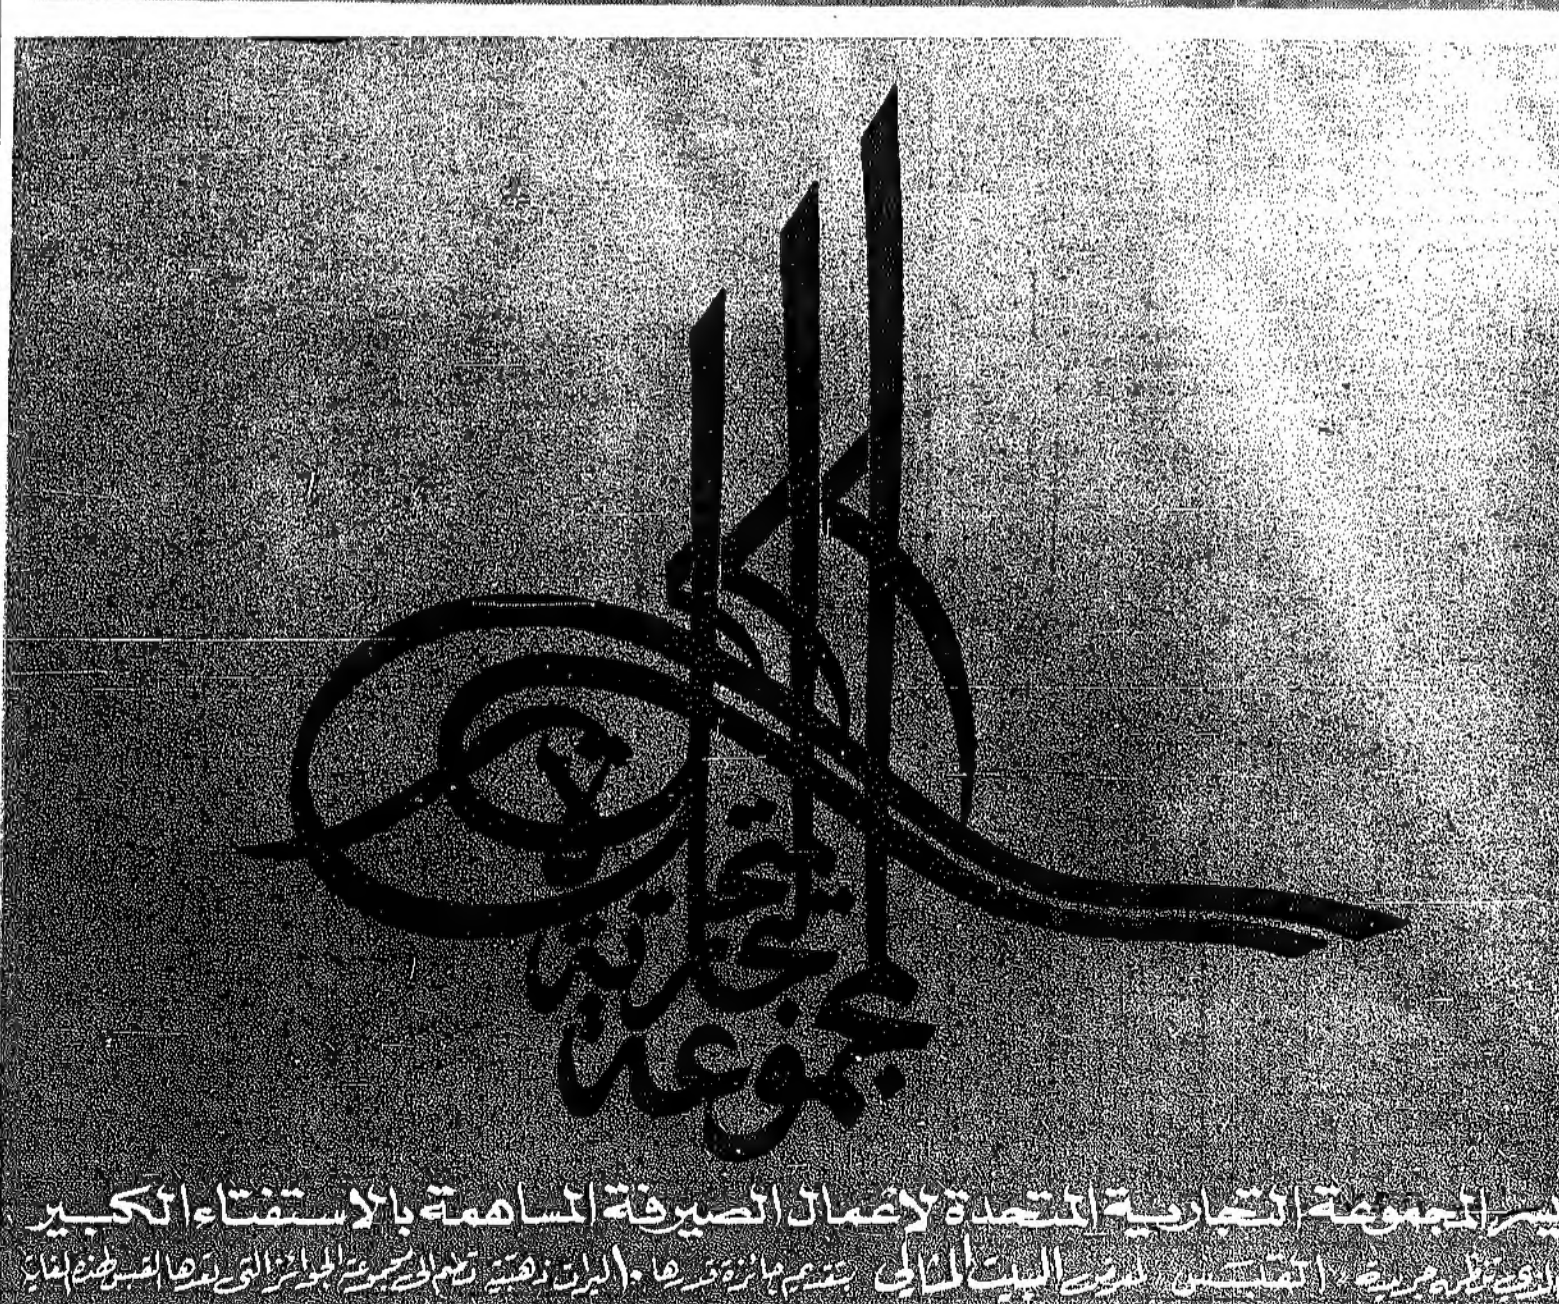 المجموعة التجارية المتحدة
يسر المجموعة التجارية المتحدة لاعمال الصيرفة المساهمة بالاستفتاء الكبير
الذي تنظمه جريدة القبس لمعرض البيت المثالي بتقديم جائزة قدرها ١٠ ليرات ذهبية تضم الى مجموعة الجوائز التي تعدها القبس لهذه الغاية